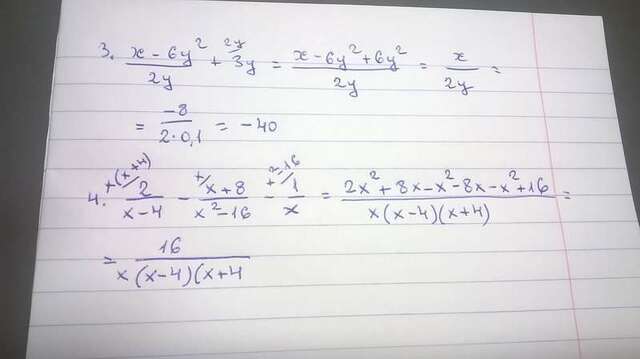 3. (x - 6y²)/(2y) + 3y^(2y = (x - 6y² + 6y²)/(2y) = x/(2y) =
= -8/(2·0,1) = -40
4. x(x+4)/ 2/(x-4) - x/ (x+8)/(x²-16) - x²-16/ 1/x = (2x² + 8x - x² - 8x - x² + 16)/(x(x-4)(x+4)) =
= 16/(x(x-4)(x+4